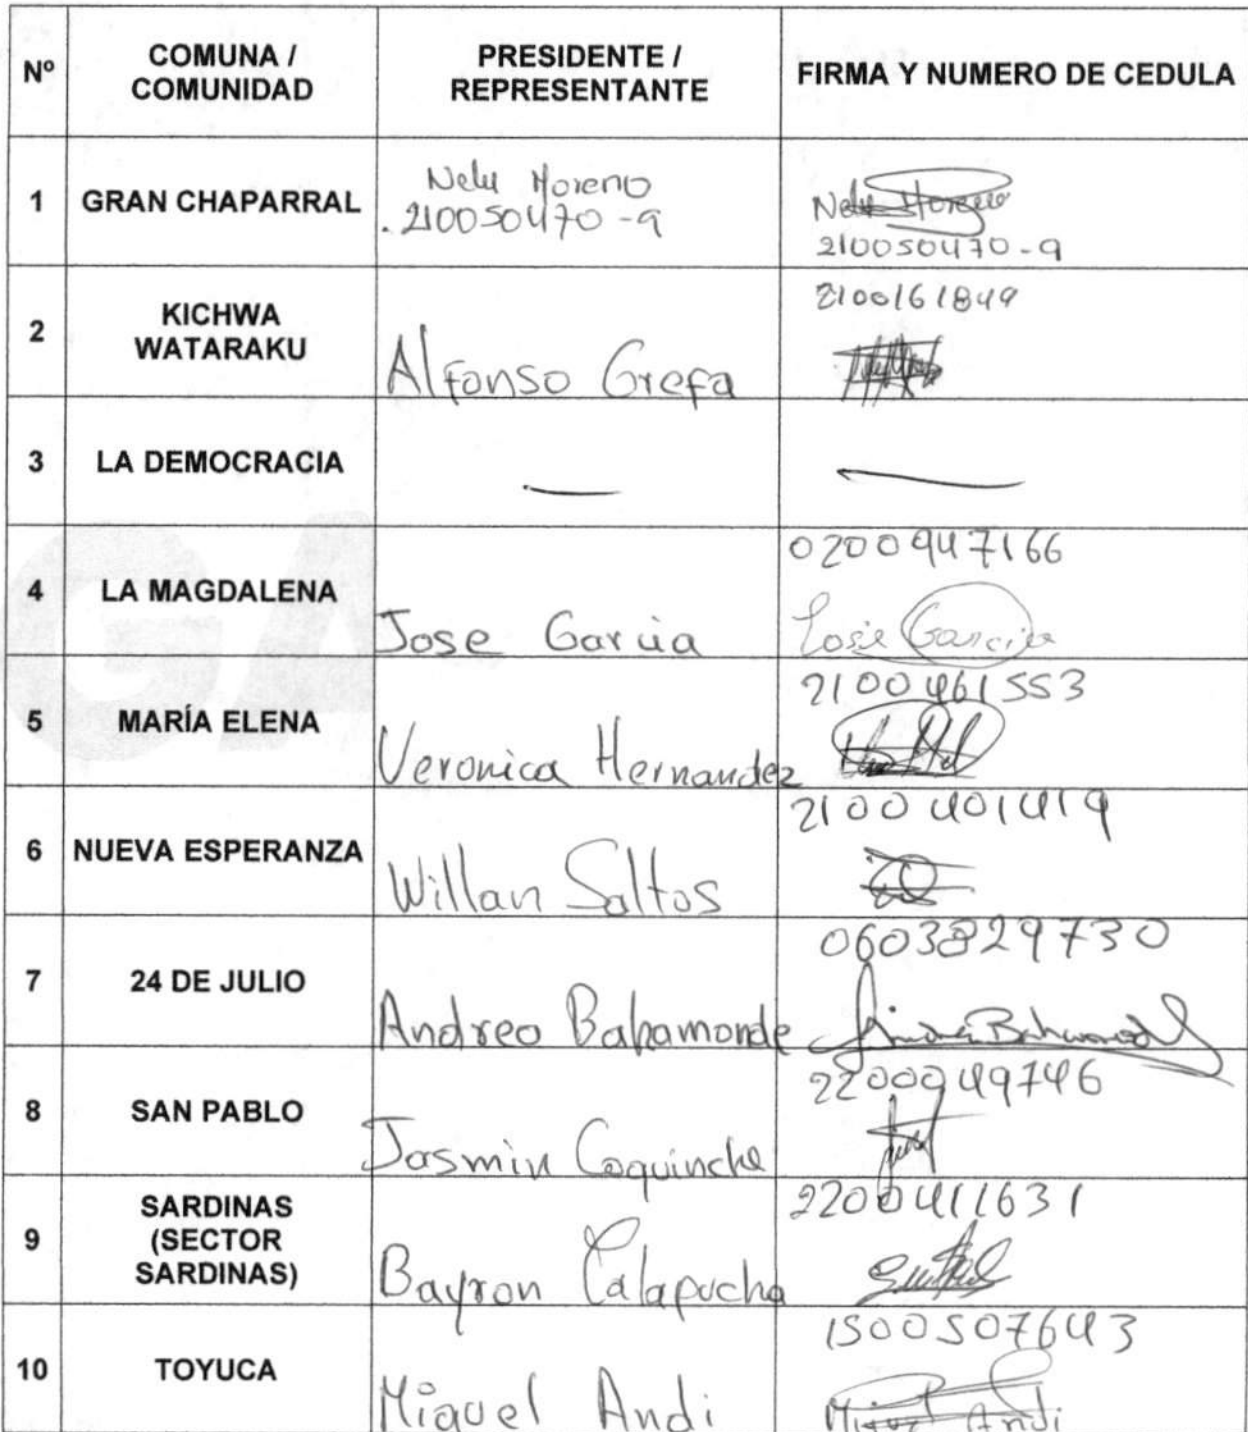 Nº
COMUNA /
COMUNIDAD
PRESIDENTE /
REPRESENTANTE
FIRMA Y NUMERO DE CEDULA
1
GRAN CHAPARRAL
Nelu Moreno
210050470-9
Nelu Moreno
210050470-9
2
KICHWA
WATARAKU
Alfonso Grefa
2100161849
3
LA DEMOCRACIA
4
LA MAGDALENA
Jose Garcia
0200947166
Jose Garcia
5
MARÍA ELENA
Veronica Hernandez
2100461553
6
NUEVA ESPERANZA
Willan Saltos
2100401419
7
24 DE JULIO
Andrea Bahamonde
0603829730
Andrea Bahamonde
8
SAN PABLO
Jasmin Coquinche
2200049746
9
SARDINAS
(SECTOR
SARDINAS)
Bayron Calapucha
2200411631
10
TOYUCA
Miguel Andi
1500507643
Miguel Andi
GA